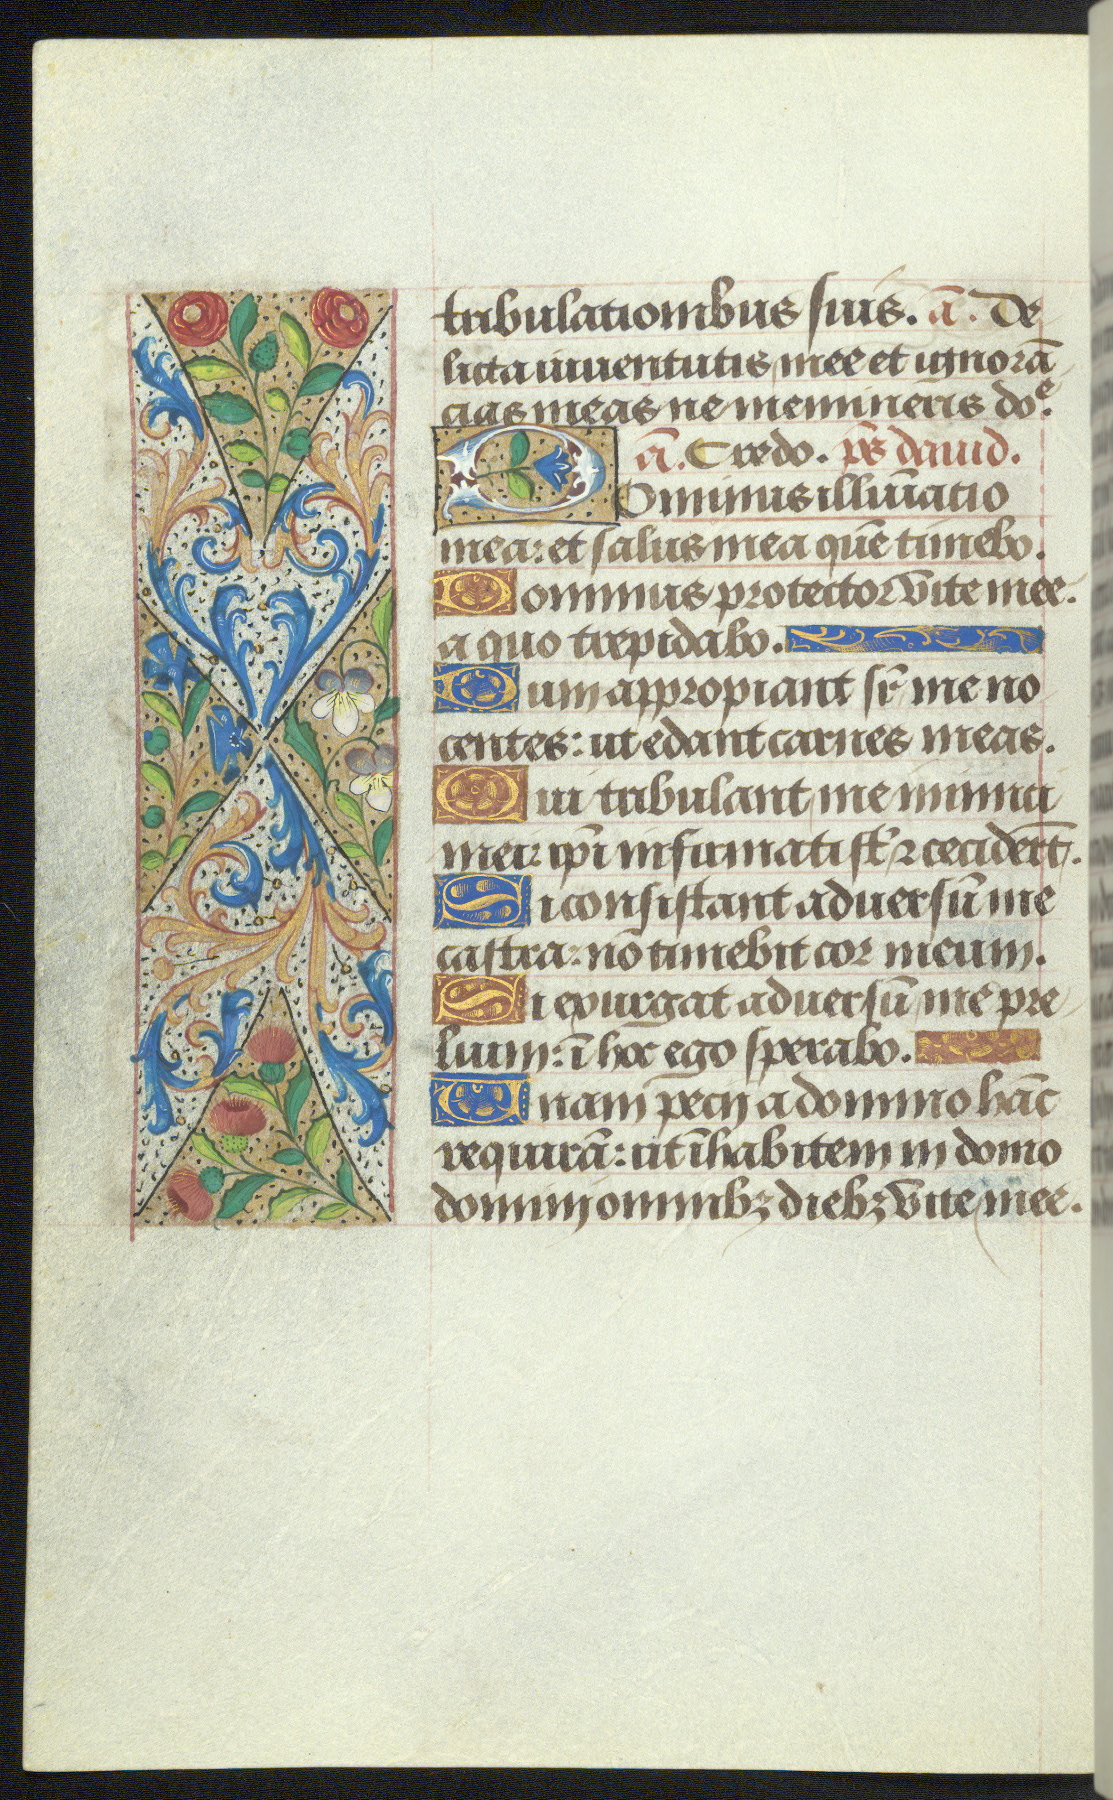 tribulationibus suis. ā. De
licta iuuentutis mee et ignorā
cias meas ne memineris doᵉ.
ā. Credo. p̄s dauid.
Dominus illuīatio
mea: et salus mea quē timebo.
Dominus protector vite mee.
a quo trepidabo.
Dum appropiant sr̄ me no
centes: ut edant carnes meas.
Qui tribulant me inimici
mei: ip̄i infirmati st̄ ⁊ cecider̄t.
Si consistant aduersū me
castra: nō timebit cor meum.
Si exurgat aduersū me pre
lium: ī hoc ego sperabo.
Unam pecij a domino hāc
requirā: ut īhabitem in domo
domini omnibꝫ diebꝫ vite mee.